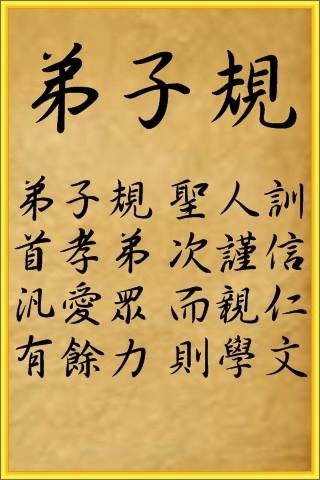 弟子規
弟子規 聖人訓
首孝弟 次謹信
汎愛眾 而親仁
有餘力 則學文